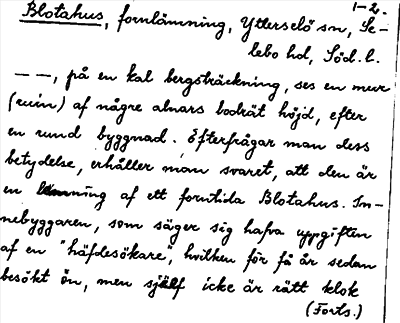 1-2.
Blotahus, fornlämning, Ytterselö sn, Se-
lebo hd, Söd. l.
— —, på en kal bergsträckning, ses en mur
(ruin) af några alnars bodrät höjd, efter
en rund byggnad. Efterfrågar man dess
betydelse, erhåller man svaret, att den är
en lämning af ett forntida Blotahus. In-
nebyggaren, som säger sig hafva uppgiften
af en "häfdesökare", hvilken för få år sedan
besökt ön, men själf icke är rätt klok
(Forts.)